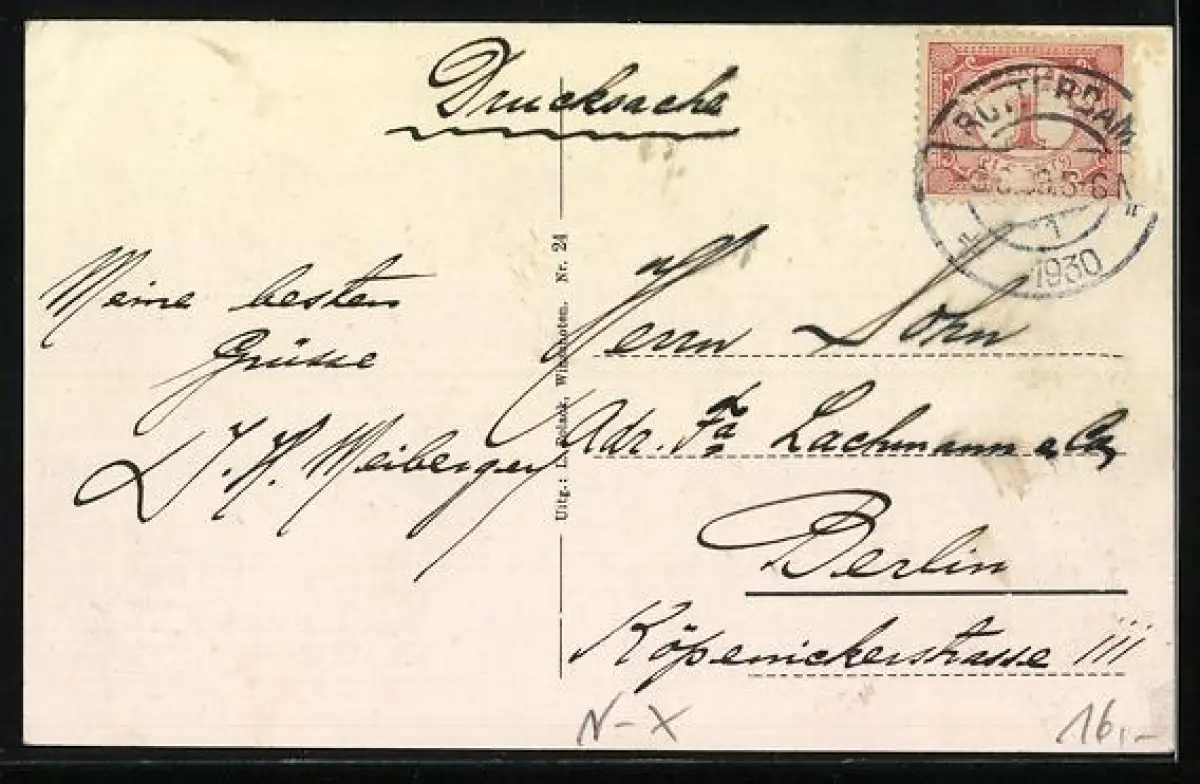 Drucksache
Meine besten
Grüsse
J. H. Meiberger
Herrn Sohn
Adr. Fa Lachmann & Co,
Berlin
Köpenickerstrasse 111
Uitg.: L. Polack, Winschoten. Nr. 24
1
ROTTERDAM
1
1930
N-X
16,-